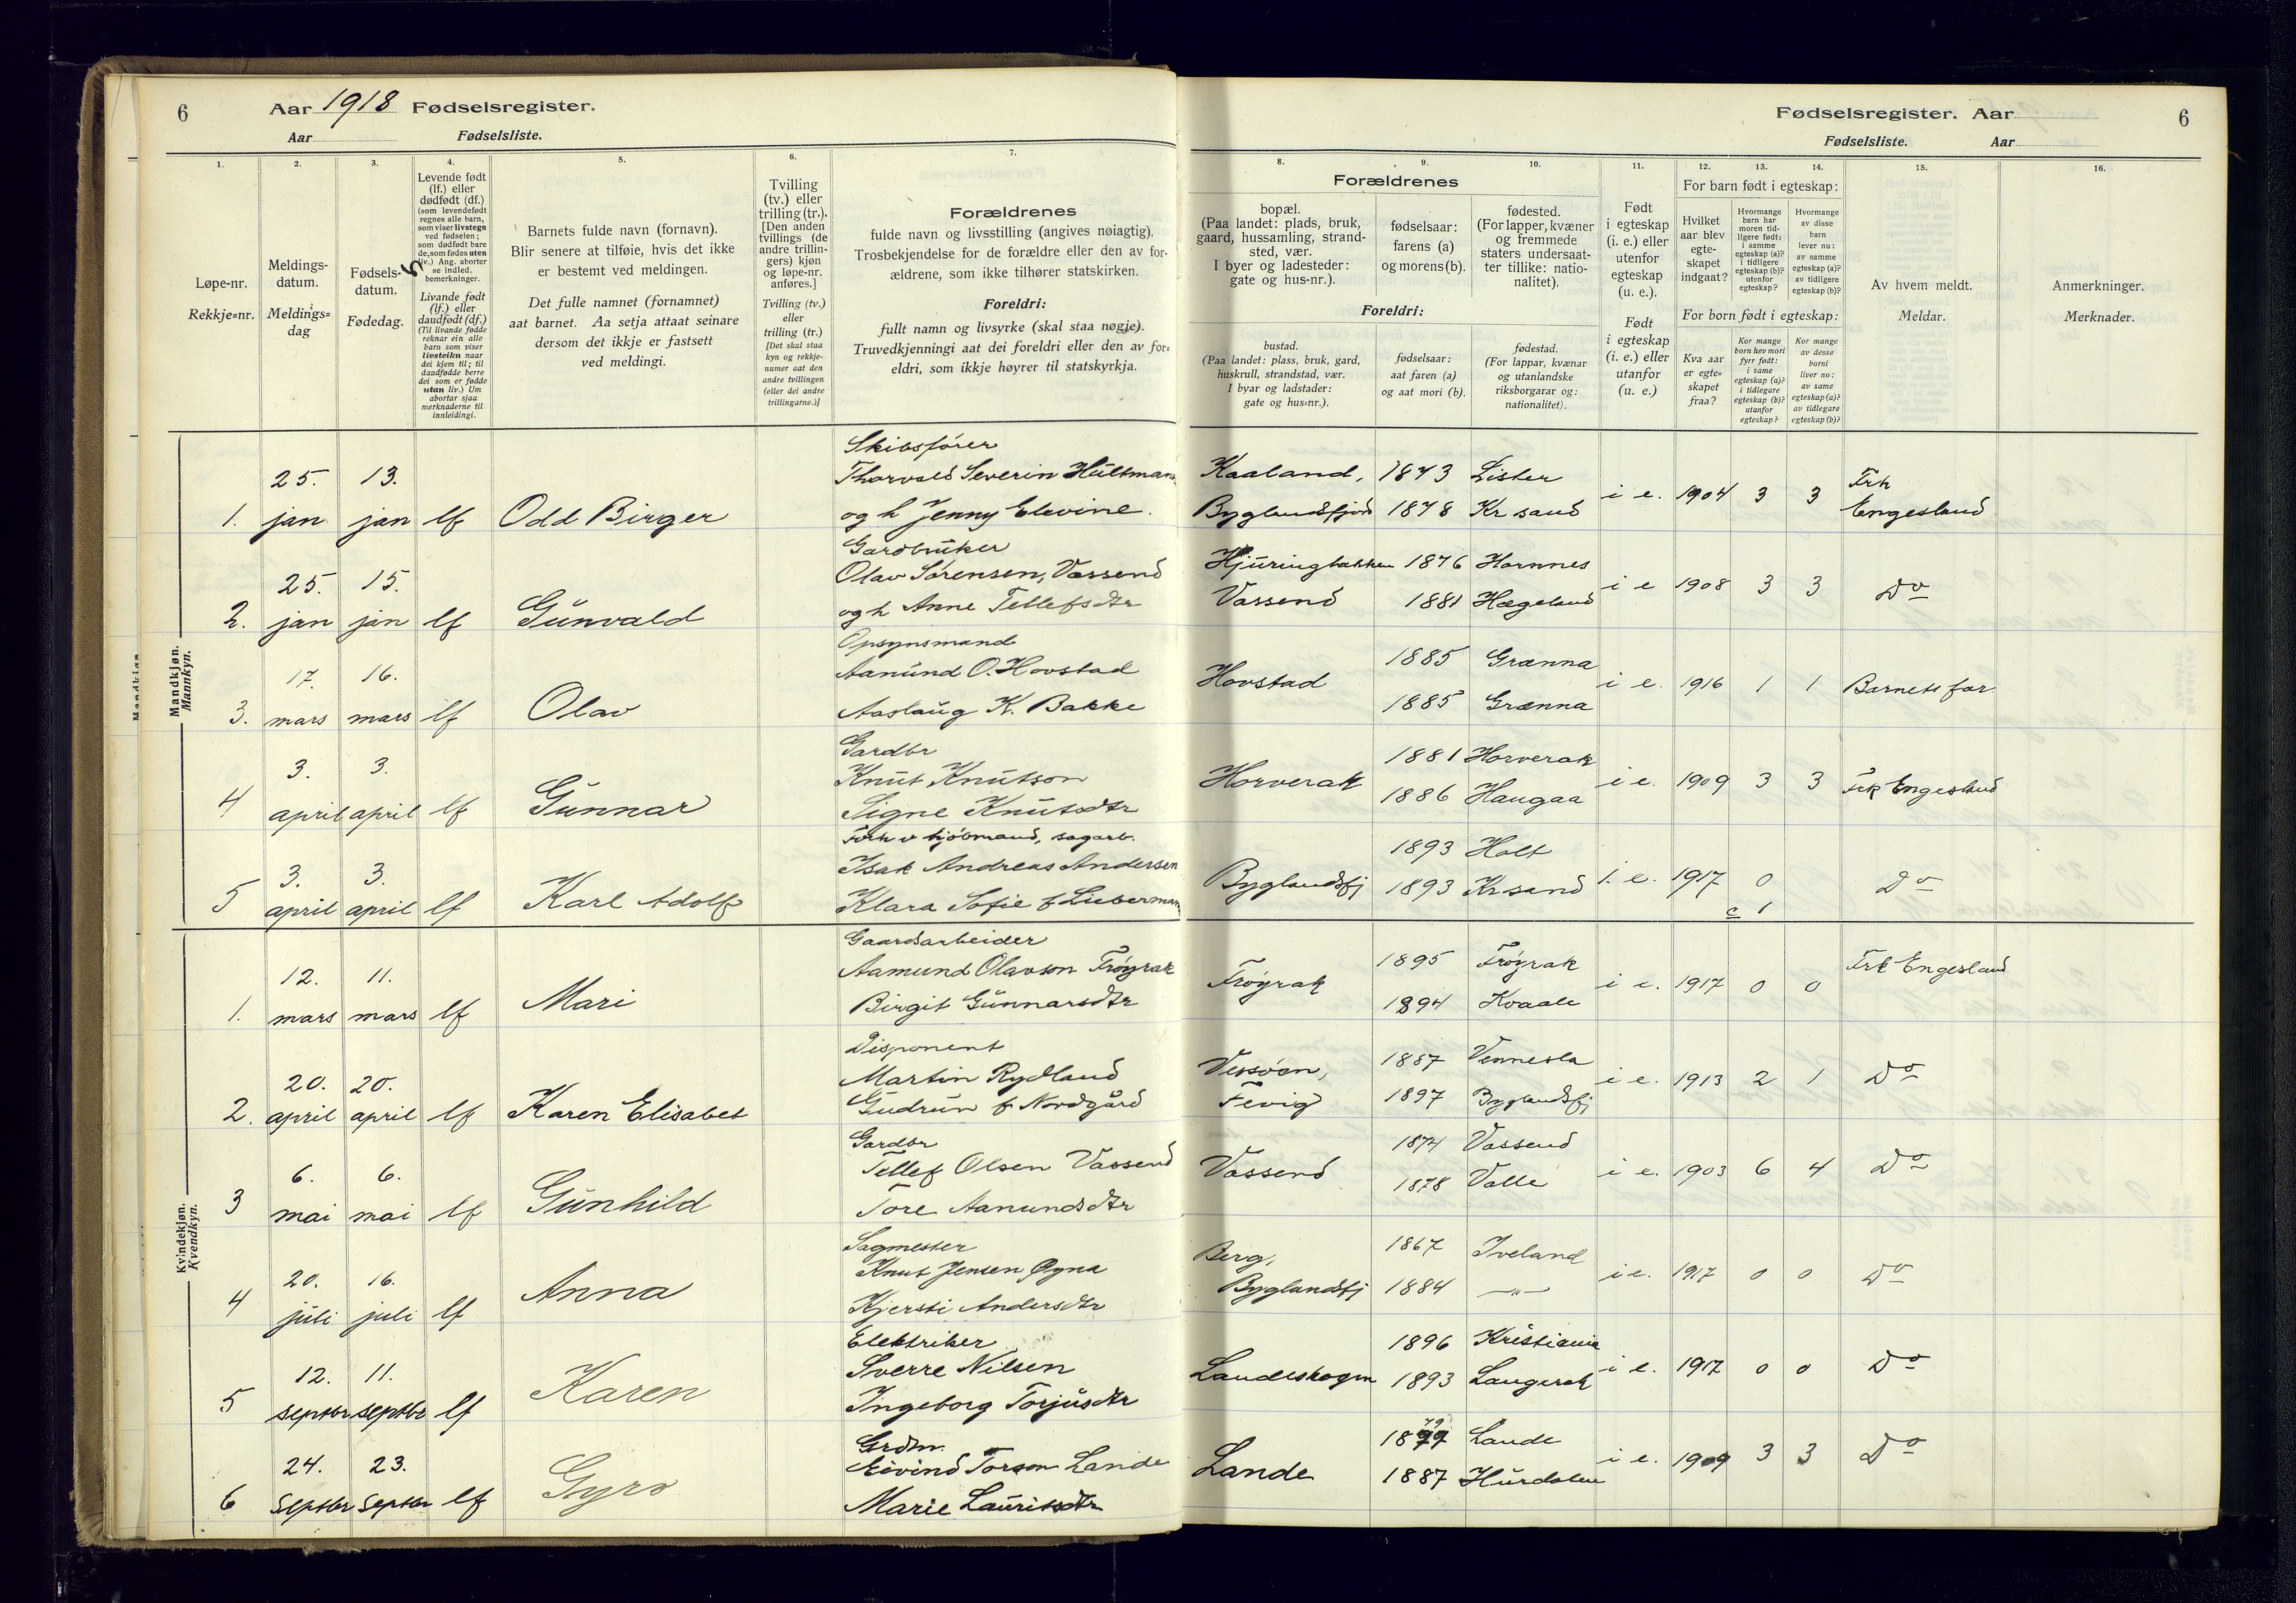 6 Aar 1918 Fødselsregister.
Aar Fødselsliste.
Fødselsregister. Aar 6
Fødselsliste. Aar
1. 2. 3. 4. 5. 6. 7. 8. 9. 10. 11. 12. 13. 14. 15. 16.
Løpe-nr.
Rekkje=nr.
Meldings-
datum.
Meldings=
dag
Fødsels-
datum.
Fødedag.
Levende født
(lf.) eller
dødfødt (df.)
(som levendefødt
regnes alle barn,
som viser livstegn
ved fødselen;
som dødfødt bare
de, som fødes uten
liv.) Ang. aborter
se indled.
bemerkninger.
Livande født
(lf.) eller
daudfødt (df.)
(Til livande fødde
reknar ein alle
barn som viser
livsteikn naar
dei kjem til; til
daudfødde berre
dei som er fødde
utan liv.) Um
abortar sjaa
merknaderne til
innleidingi.
Barnets fulde navn (fornavn).
Blir senere at tilføie, hvis det ikke
er bestemt ved meldingen.
Det fulle namnet (fornamnet)
aat barnet. Aa setja attaat seinare
dersom det ikkje er fastsett
ved meldingi.
Tvilling
(tv.) eller
trilling (tr.).
[Den anden
tvillings (de
andre trillin-
gers) kjøn
og løpe-nr.
anføres.]
Tvilling (tv.)
eller
trilling (tr.)
[Det skal staa
kyn og rekkje-
numer aat den
andre tvillingen
(eller dei andre
trillingarne.)]
Forældrenes
fulde navn og livsstilling (angives nøiagtig).
Trosbekjendelse for de forældre eller den av for-
ældrene, som ikke tilhører statskirken.
Foreldri:
fullt namn og livsyrke (skal staa nøgje).
Truvedkjenningi aat dei foreldri eller den av for=
eldri, som ikkje høyrer til statskyrkja.
Forældrenes
bopæl.
(Paa landet: plads, bruk,
gaard, hussamling, strand-
sted, vær.
I byer og ladesteder:
gate og hus-nr.).
fødselsaar:
farens (a)
og morens (b).
fødested.
(For lapper, kvæner
og fremmede
staters undersaat-
ter tillike: natio-
nalitet).
Foreldri:
bustad.
(Paa landet: plass, bruk, gard,
huskrull, strandstad, vær.
I byar og ladstader:
gate og hus=nr.).
fødselsaar:
aat faren (a)
og aat mori (b).
fødestad.
(For lappar, kvænar
og utanlandske
riksborgarar og:
nationalitet).
Født
i egteskap
(i. e.) eller
utenfor
egteskap
(u. e.).
Født
i egteskap
(i. e.) eller
utanfor
(u. e.)
For barn født i egteskap:
Hvilket
aar blev
egte-
skapet
indgaat?
Hvormange
barn har
moren tid-
ligere født:
i samme
egteskap (a)?
i tidligere
egteskap (b)?
utenfor
egteskap?
Hvormange
av disse
barn
lever nu:
av samme
egteskap (a)?
av tidligere
egteskap (b)?
For born født i egteskap:
Kva aar
er egte=
skapet
fraa?
Kor mange
born hev mori
fyrr født:
i same
egteskap (a)?
i tidlegare
egteskap (b)?
utanfor
egteskap?
Kor mange
av desse
borni
liver no:
av same
egteskap (a)?
av tidlegare
egteskap (b)?
Av hvem meldt.
Meldar.
Anmerkninger.
Merknader.
Mandkjøn.
Mannkyn.
Skibsfører
25. 13. Thorvald Severin Hultmann Kaaland, 1873 Lister Frk
1. jan jan lf Odd Birger og h Jenny Elevine. Byglandsfjord 1878 Kr sand i e. 1904 3 3 Engesland
Gardbruker
25. 15. Olav Sørensen, Vassend Hjuringbakken 1876 Hornnes
2. jan jan lf Gunvald og h Anne Tellefsdtr Vassend 1881 Hægeland i e 1908 3 3 Do
Opsynsmand
17. 16. Aanund O. Hovstad Hovstad 1885 Grænna
3. mars mars lf Olav Aaslaug K. Bakke 1885 Grænna i e. 1916 1 1 Barnets far
Gardbr
3. 3. Knut Knutson Horverak 1881 Horverak
4 april april lf Gunnar Signe Knutsdtr 1886 Haugaa i e. 1909 3 3 Frk Engesland
Forh v hjólmand, sagarb.
3. 3. Isak Andreas Andersen Byglandsfj 1893 Holt
5 april april lf Karl Adolf Klara Sofie f Liebermann 1893 Krsand i. e. 1917 0 Do
c 1
Kvindekjøn.
Kvendkyn.
Gaardsarbeider
12. 11. Aamund Olavson Frøyrak Frøyrak 1895 Frøyrak Frk Engesland
1. mars mars lf Mari Birgit Gunnarsdtr 1894 Kvaale i e. 1917 0 0
Disponent
20. 20. Martin Rydland Vessøen, 1887 Vennesla
2. april april lf Karen Elisabet Gudrun f Nordgård Fevig 1897 Byglandsfj i e. 1913 2 1 Do
Gardbr
6. 6. Tellef Olsen Vassend Vassend 1874 Vassend
3 mai mai lf Gunhild Tore Aanundsdtr 1878 Valle i e. 1903 6 4 Do
Sagmester
20. 16. Knut Jensen Øyna Berg, 1867 Iveland
4 juli juli lf Anna Kjersti Andersdtr Byglandsfj 1884 —"— i e. 1917 0 0 Do
Elektriker
12. 11. Sverre Nilsen Landeskogen 1896 Kristiania
5 septbr septbr lf Karen Ingeborg Torjusdtr 1893 Langerak i e. 1917 0 0 Do
Grdm.
24. 23. Eivind Torson Lande Lande 1879 Lande
6 Septbr Septbr lf Gyro Marie Lauritsdtr 1887 Hurdalen i e. 1909 3 3 Do